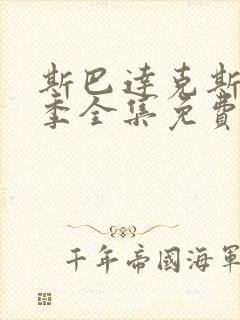 斯巴達克斯
季全集免費
千年帝國海軍